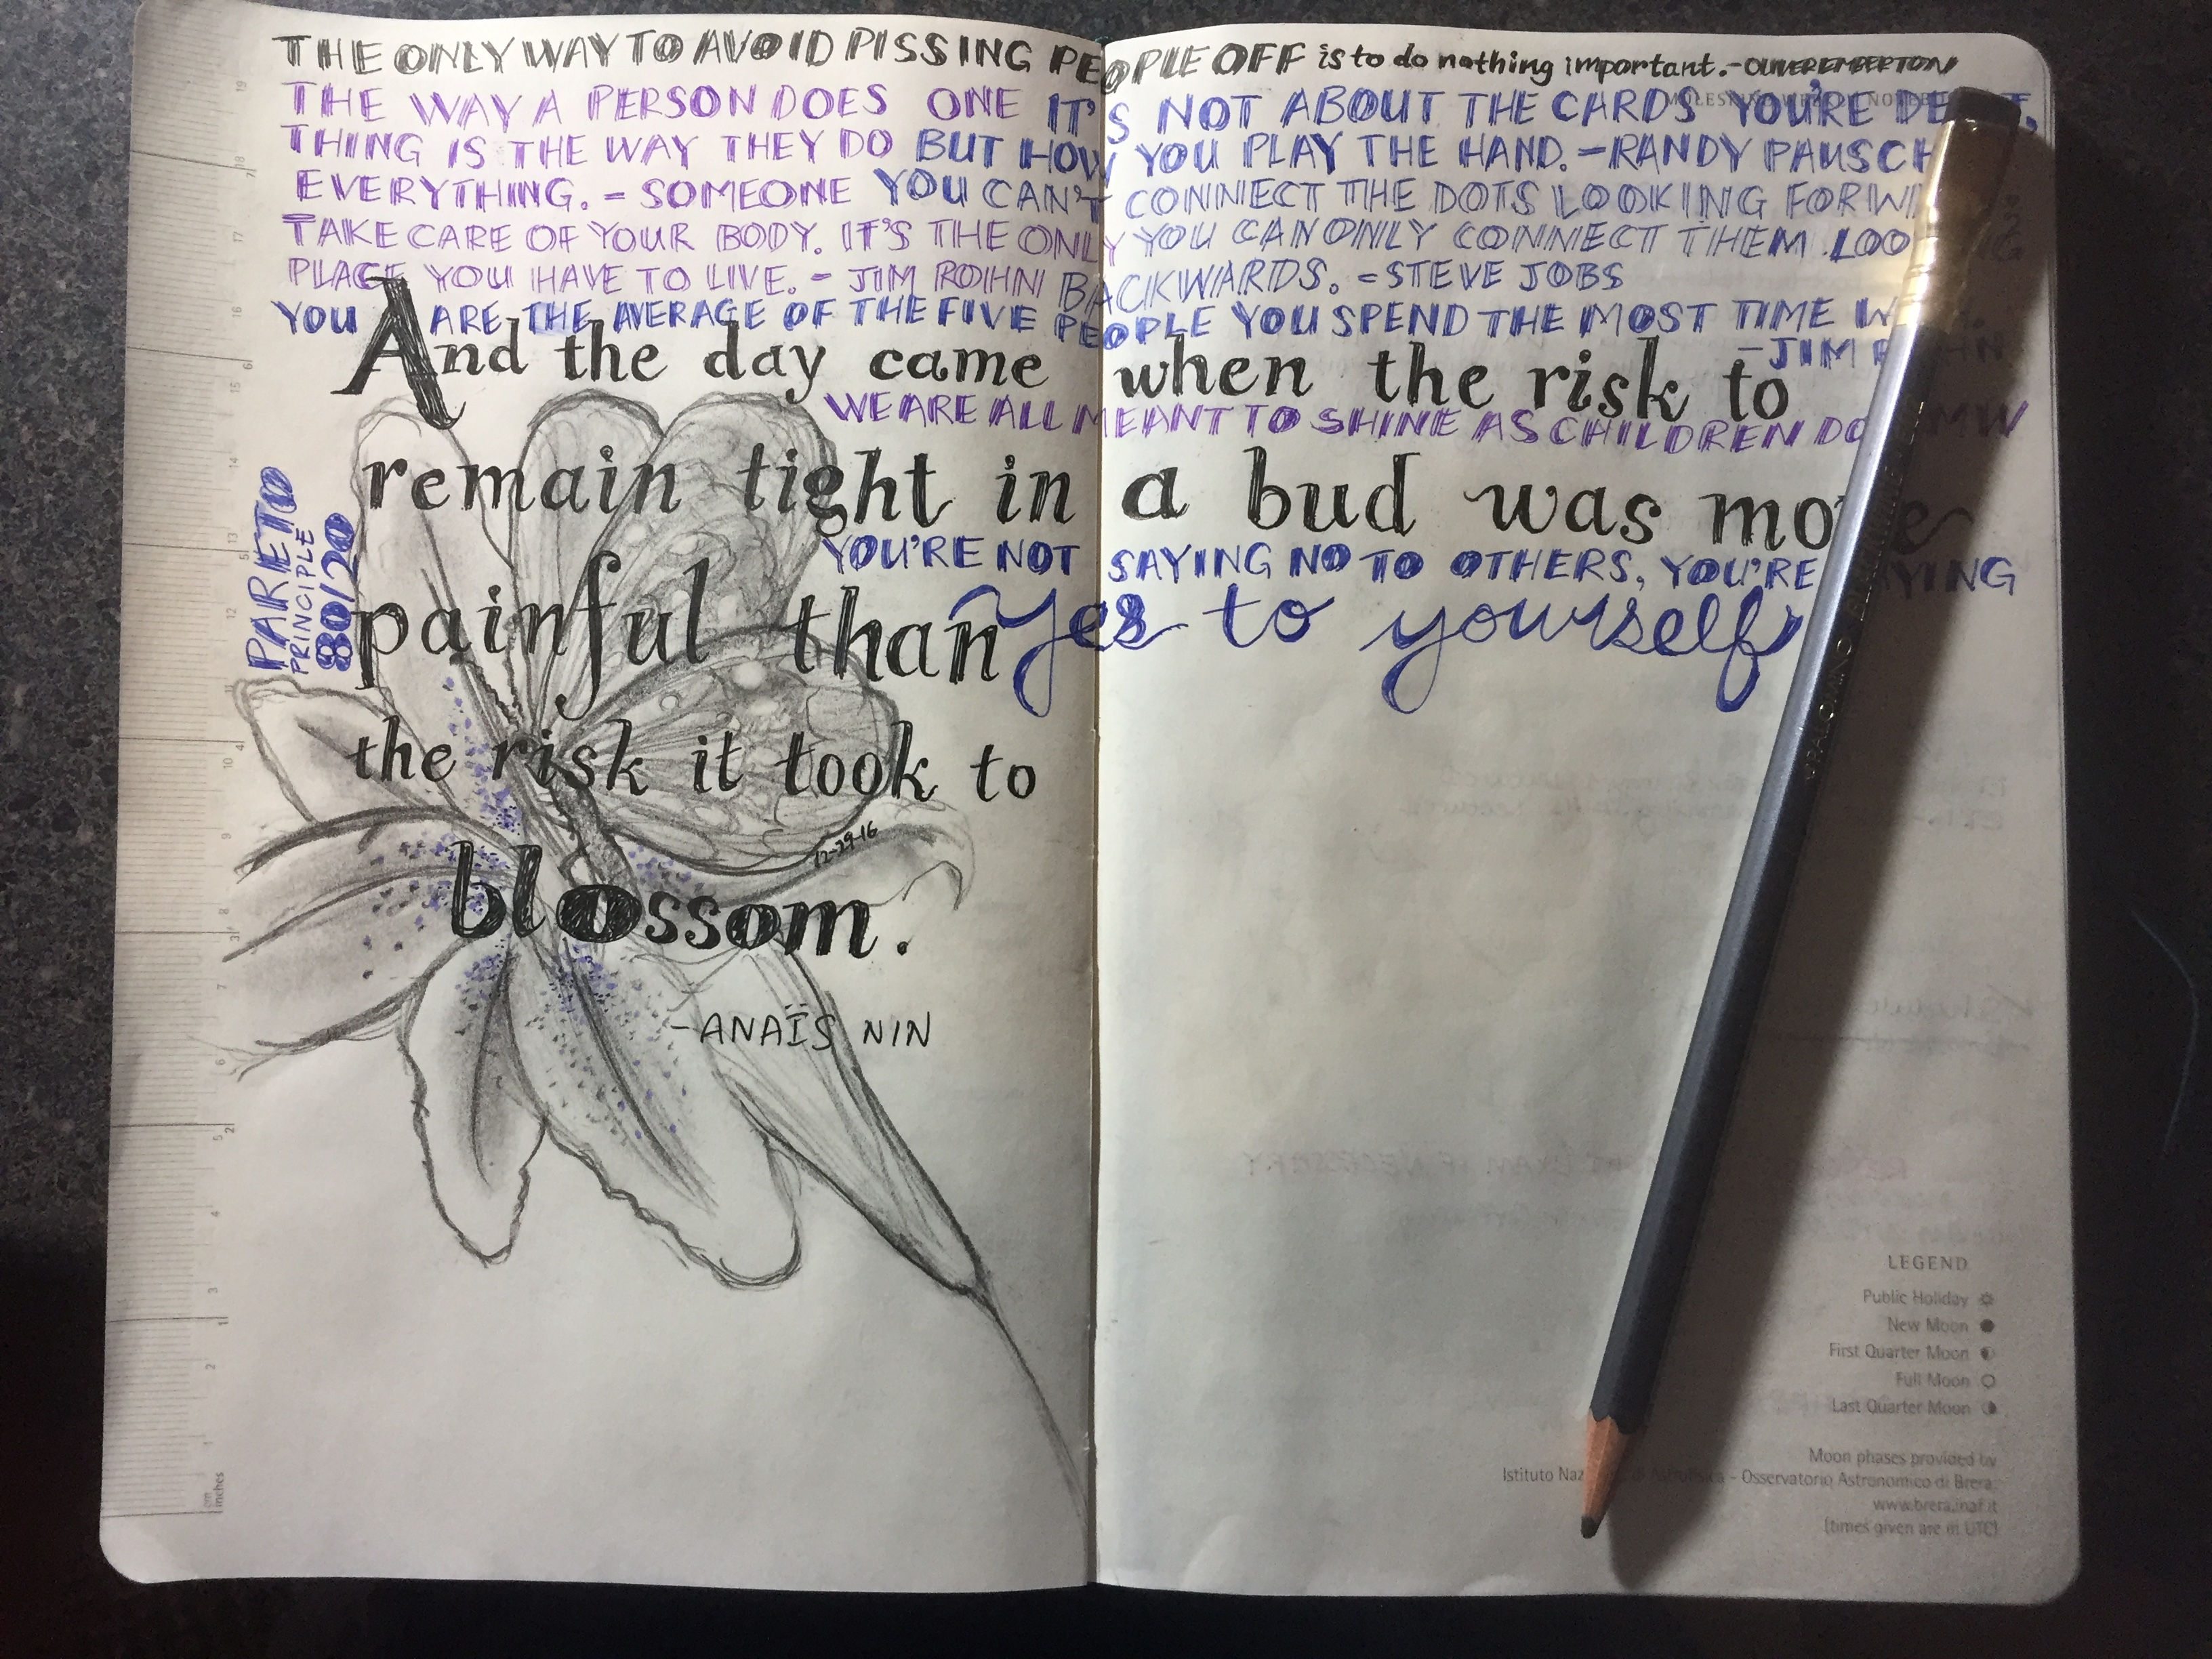 THE ONLY WAY TO AVOID PISSING PEOPLE OFF is to do nothing important. - OLIVER EMBERTON
THE WAY A PERSON DOES ONE
THING IS THE WAY THEY DO
EVERYTHING. - SOMEONE
IT'S NOT ABOUT THE CARDS YOU'RE
BUT HOW YOU PLAY THE HAND. - RANDY PAUSCH
YOU CAN'T CONNECT THE DOTS LOOKING
YOU CAN ONLY CONNECT THEM
BACKWARDS. - STEVE JOBS
TAKE CARE OF YOUR BODY. IT'S THE ONLY
PLACE YOU HAVE TO LIVE. - JIM ROHN
YOU ARE THE AVERAGE OF THE FIVE PEOPLE YOU SPEND THE MOST TIME
- JIM
And the day came when the risk to
WE ARE ALL MEANT TO SHINE AS CHILDREN DO MW
remain tight in a bud was more
YOU'RE NOT SAYING NO TO OTHERS, YOU'RE SAYING
yes to yourself
painful than
the risk it took to
12-29-16
blossom.
- ANAÏS NIN
PARETO
PRINCIPLE
80/20
LEGEND
Public Holiday
New Moon
First Quarter Moon
Full Moon
Last Quarter Moon
Moon phases provided by
Istituto - Osservatorio Astronomico di Brera
www.brera.inaf.it
(times given are in UTC)
cm
inches